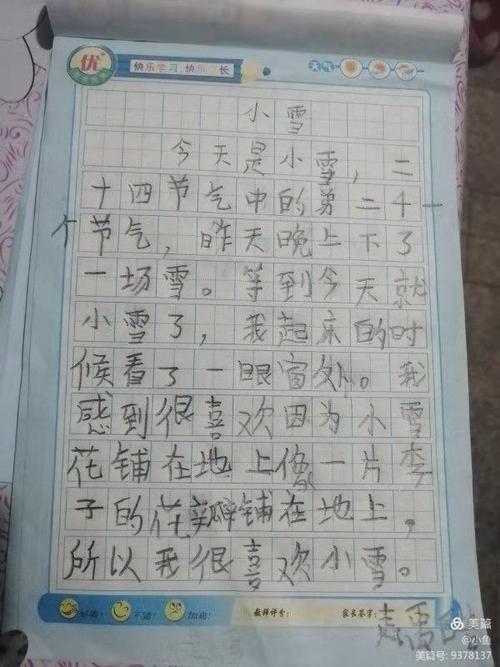 优
快乐学习 快乐成长
天气
小雪
今天是小雪，二
十四节气中的第二十一
个节气，昨天晚上下了
一场雪。等到今天就
小雪了，我起床的时
候看了一眼窗外。我
感到很喜欢因为小雪
花铺在地上像一片李
子的花瓣铺在地上，
所以我很喜欢小雪。
好棒！ 不错！ 加油！ 教师评价： 家长签字：
美篇 @小鱼
美篇号: 9378137